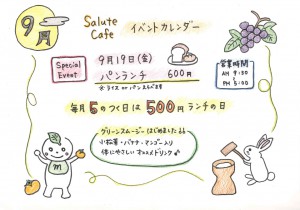 9月
Salute Cafe イベントカレンダー
Special Event
9月19日(金)
パンランチ 600円
※ライス or パン えらべます
営業時間
AM 9:30
〜
PM 5:00
毎月5のつく日は500円ランチの日
グリーンスムージーはじめました
小松菜・バナナ・マンゴー入り
体にやさしいオススメドリンク
m